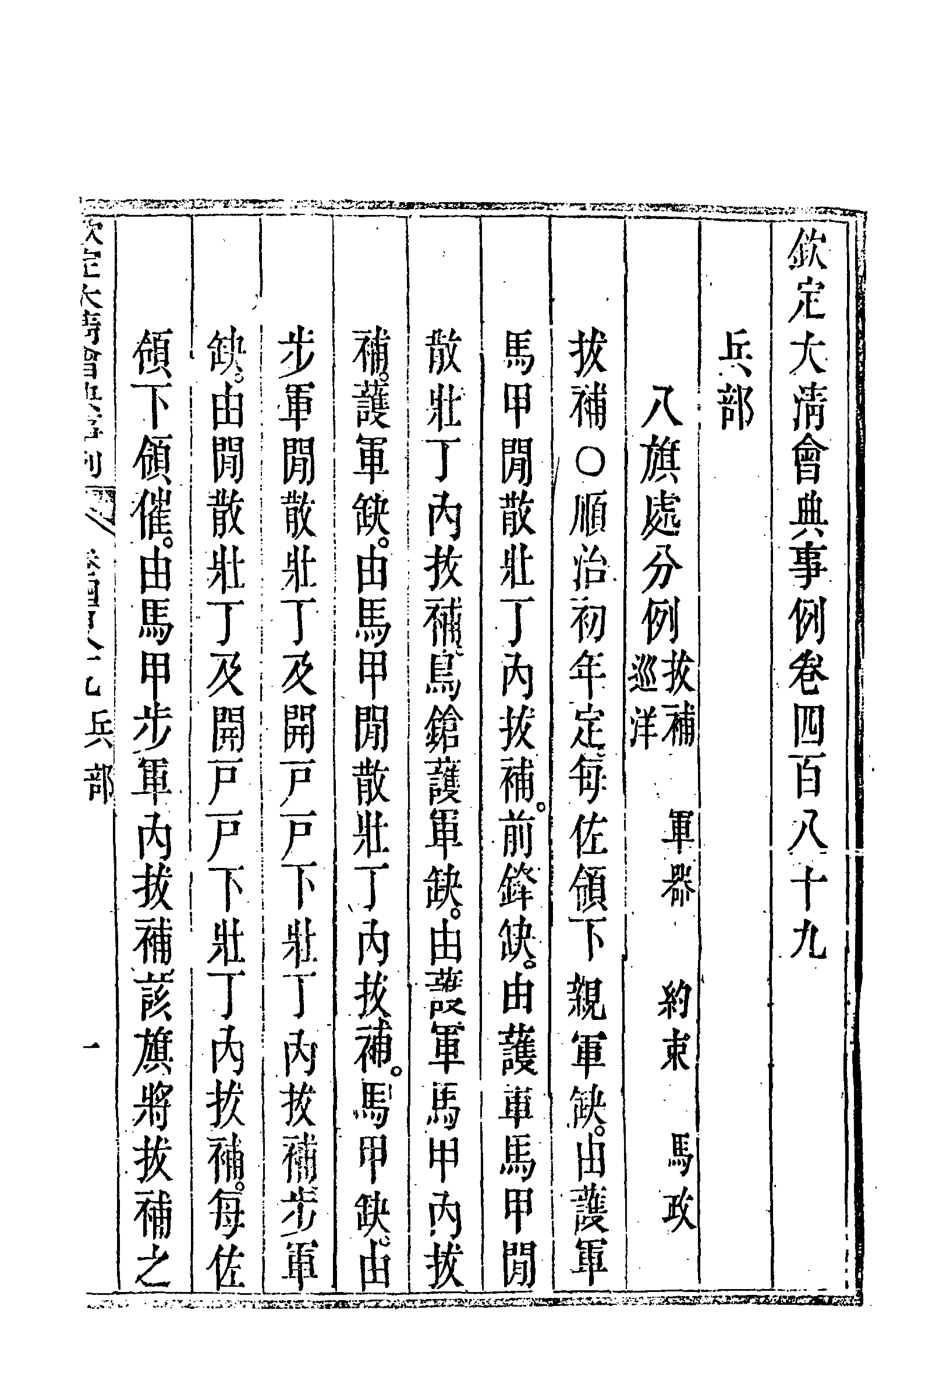 欽定大清會典事例卷四百八十九
兵部
八旗處分例 拔補 軍器 約束 馬政
巡洋
拔補○順治初年定每佐領下親軍缺。由護軍
馬甲閒散壯丁內拔補。前鋒缺。由護軍馬甲閒
散壯丁內拔補鳥鎗護軍缺。由護軍馬甲內拔
補。護軍缺。由馬甲閒散壯丁內拔補。馬甲缺。由
步軍閒散壯丁及開戶戶下壯丁內拔補步軍
缺。由閒散壯丁及開戶戶下壯丁內拔補。每佐
領下領催。由馬甲步軍內拔補該旗將拔補之
欽定大清會典事例 卷四百八十九 兵部 一